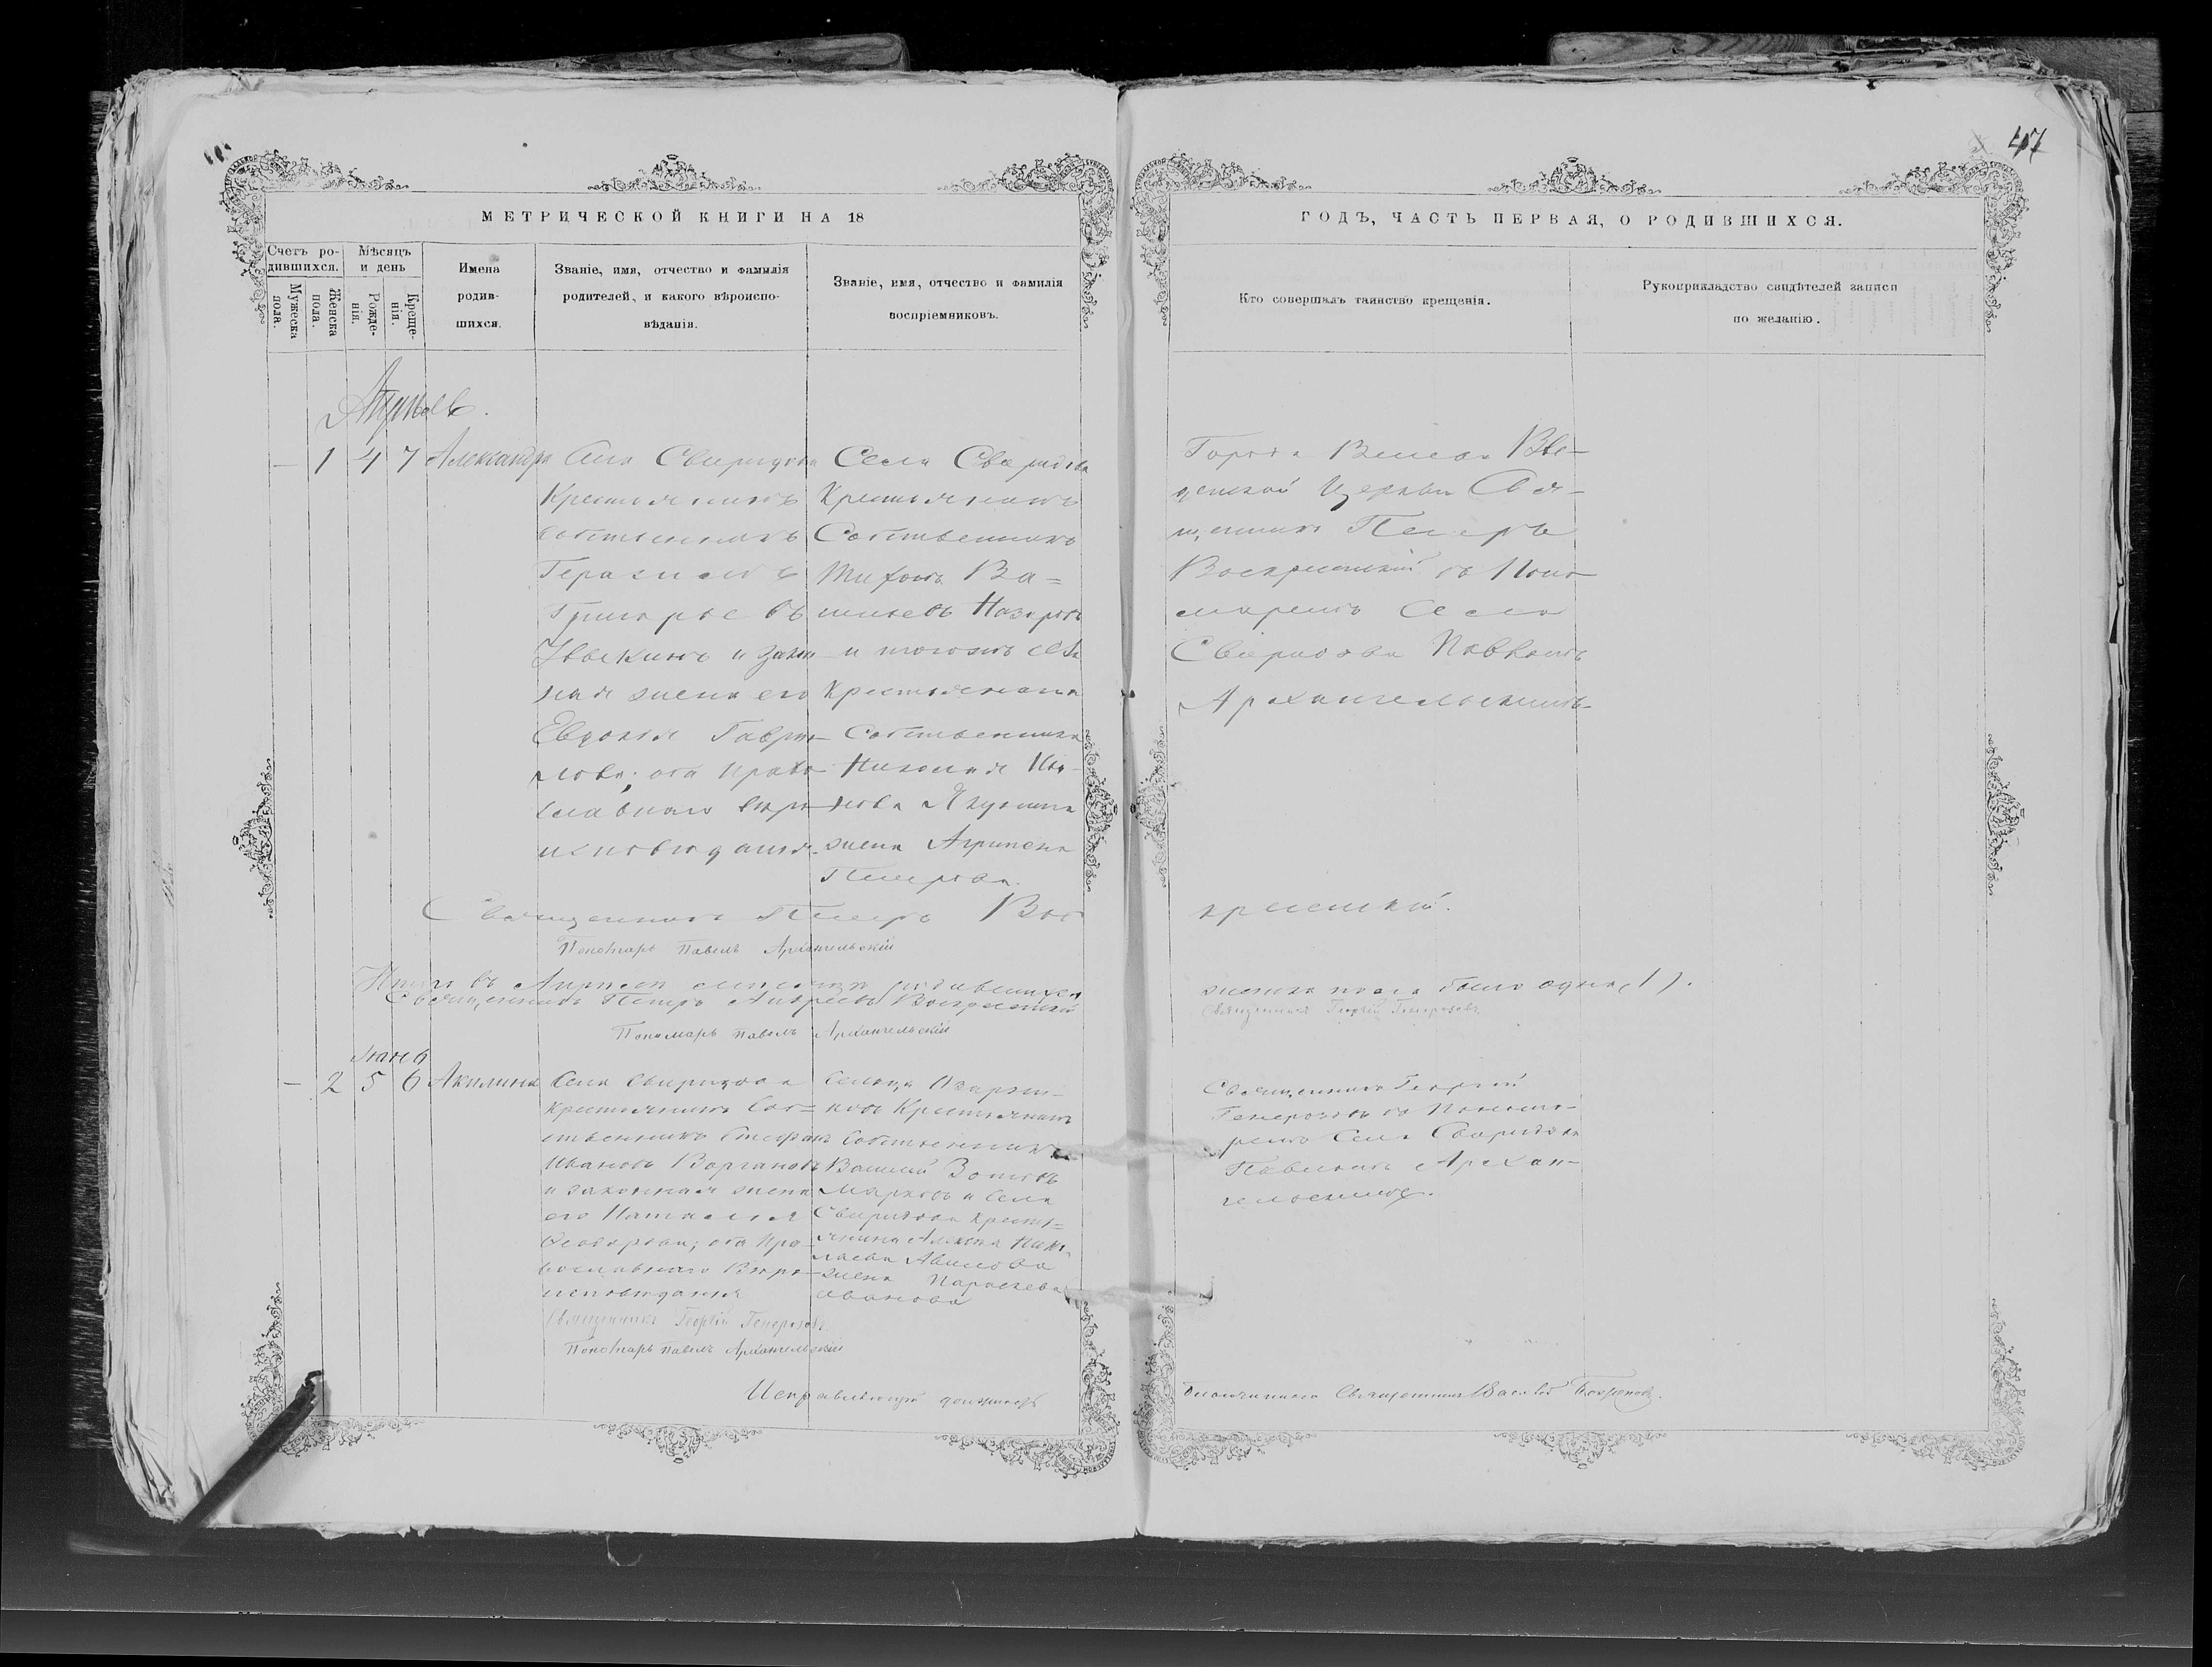 47
МЕТРИЧЕСКОЙ КНИГИ НА 18
ГОДЪ, ЧАСТЬ ПЕРВАЯ, О РОДИВШИХСЯ.
Счетъ ро-
дившихся.
Мужеска пола.
Женска пола.
Мѣсяцъ
и день
Рожде-
нія.
Креще-
нія.
Имена
родив-
шихся.
Званіе, имя, отчество и фамилія
родителей, и какого вѣроиспо-
вѣданія.
Званіе, имя, отчество и фамилія
воспріемниковъ.
Кто совершалъ таинство крещенія.
Рукоприкладство свидѣтелей записи
по желанію.
Апрѣль.
— 1 4 7 Александра
Села Свиридова
Крестьянинъ
собственникъ
Герасимъ
Григорьевъ
и закон
ная жена его
Евдокія Гаври-
лова; оба право
славнаго вѣро
исповѣданія.
Села Свиридова
Крестьянинъ
Собственникъ
Тихонъ Ва=
сильевъ Назаровъ
и тогожъ села
Крестьянина
Собственника
Николая Ива-
нова Якунина
жена Агрипена
Петрова.
Города Венева Вве-
денской Церкви Свя-
щенникъ Петръ
Воскресенскій съ Поно-
маремъ Села
Свиридова Павломъ
Архангельскимъ
Священникъ Петръ Вос
кресенскій.
Пономарь Павелъ Архангельскій
Итого въ Апрѣлѣ мѣсяцѣ родившихся
женска пола было одна (1).
Священникъ Петръ Андреевъ Воскресенскій
Священникъ Георгій Генерозовъ
Пономарь Павелъ Архангельскій
Іюнь
— 2 5 6 Акилина
Села Свиридова
крестьянинъ Соб=
ственникъ Стефанъ
Ивановъ Ворганов
и законная жена
его Наталія
Ѳеодорова; оба Пра-
вославнаго Вѣро-
исповѣданія
Сельца
Крестьянинъ
Собственникъ
Василій Зотовъ
Марковъ и Села
Свиридова Кресть=
янина Алексѣя Нико
лаева Авилова
жена Параскева
Иванова
Священникъ Георгій
Генерозовъ съ Понома-
ремъ Села Свиридова
Павломъ Архан-
гельскимъ.
Священникъ Георгій Генерозовъ
Пономарь Павелъ Архангельскій
Исправляющій должность
благочиннаго Священникъ